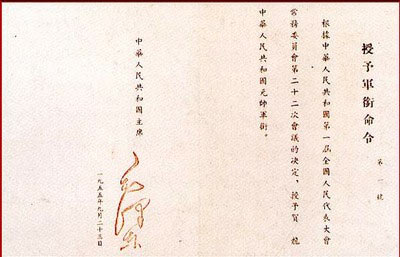 授予軍銜命令
第一號
根據中華人民共和國第一屆全國人民代表大會
常務委員會第二十二次會議的决定，授予賀龍
中華人民共和國元帥軍銜。
中華人民共和國主席
毛澤東
一九五五年九月二十三日